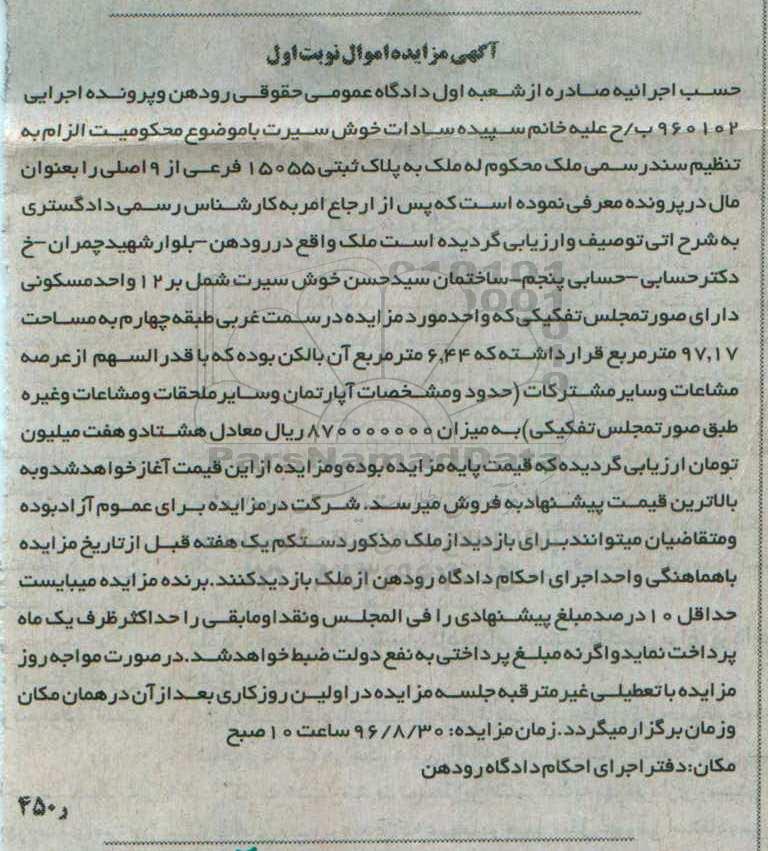 آگهی مزایده اموال نوبت اول
حسب اجرائیه صادره از شعبه اول دادگاه عمومی حقوقی رودهن و پرونده اجرایی
۹۶۰۱۰۲ ب/ح علیه خانم سپیده سادات خوش سیرت با موضوع محکومیت الزام به
تنظیم سند رسمی ملک محکوم له ملک به پلاک ثبتی ۱۵۰۵۵ فرعی از ۹ اصلی را بعنوان
مال در پرونده معرفی نموده است که پس از ارجاع امر به کارشناس رسمی دادگستری
به شرح اتی توصیف و ارزیابی گردیده است ملک واقع در رودهن -بلوار شهید چمران -خ
دکتر حسابی -حسابی پنجم- ساختمان سیدحسن خوش سیرت شمل بر ۱۲ واحد مسکونی
دارای صورتمجلس تفکیکی که واحد مورد مزایده در سمت غربی طبقه چهارم به مساحت
۹۷,۱۷ مترمربع قرار داشته که ۶,۴۴ مترمربع آن بالکن بوده که با قدرالسهم از عرصه
مشاعات و سایر مشترکات (حدود و مشخصات آپارتمان و سایر ملحقات و مشاعات و غیره
طبق صورتمجلس تفکیکی) به میزان ۸۷۰۰۰۰۰۰۰ ریال معادل هشتاد و هفت میلیون
تومان ارزیابی گردیده که قیمت پایه مزایده بوده و مزایده از این قیمت آغاز خواهد شد و به
بالاترین قیمت پیشنهاد به فروش میرسد، شرکت در مزایده برای عموم آزاد بوده
و متقاضیان میتوانند برای بازدید از ملک مذکور دستکم یک هفته قبل از تاریخ مزایده
با هماهنگی واحد اجرای احکام دادگاه رودهن از ملک بازدید کنند. برنده مزایده میبایست
حداقل ۱۰ درصد مبلغ پیشنهادی را فی المجلس و نقدا و مابقی را حداکثر ظرف یک ماه
پرداخت نماید و اگر نه مبلغ پرداختی به نفع دولت ضبط خواهد شد. در صورت مواجه روز
مزایده با تعطیلی غیر مترقبه جلسه مزایده در اولین روز کاری بعد از آن در همان مکان
و زمان برگزار میگردد. زمان مزایده: ۹۶/۸/۳۰ ساعت ۱۰ صبح
مکان: دفتر اجرای احکام دادگاه رودهن
ر ۴۵۰
ParsNamadData